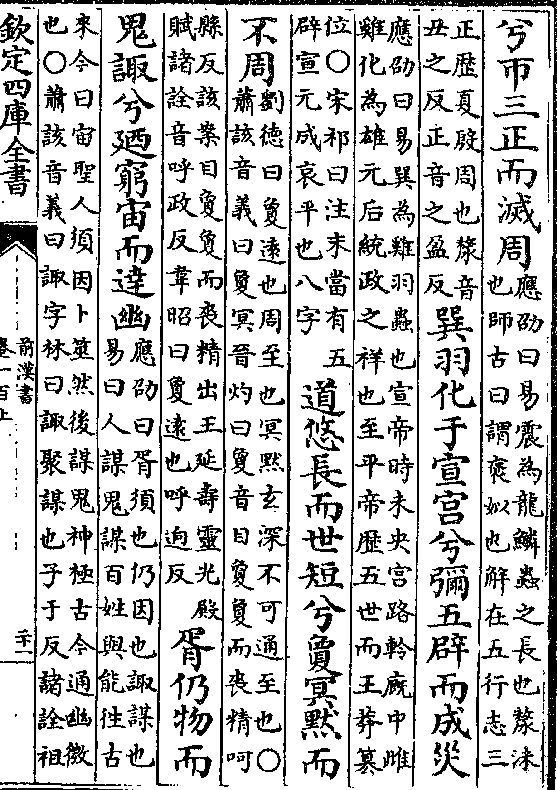 兮帀三正而滅周
應劭曰易震為龍鱗蟲之長也漦沫
也師古曰謂褒姒也解在五行志三
正歴夏殷周也漦音
丑之反正音之盈反
巽羽化于宣宫兮彌五辟而成災
應劭曰易巽為雞羽蟲也宣帝時未央宫路軨廐中雌
雞化為雄元后統政之祥也至平帝歴五世而王莽簒
位○宋祁曰注末當有五
辟宣元成哀平也八字
道悠長而世短兮夐冥黙而
不周
劉德曰夐遠也周至也冥黙玄深不可通至也○
蕭該音義曰夐冥晉灼曰夐音目夐夐而喪精呵
縣反該案目夐夐而喪精出王延夀靈光殿
賦諸詮音呼政反韋昭曰夐遠也呼迥反
胥仍物而
鬼諏兮廼窮宙而達幽
應劭曰胥須也仍因也諏謀也
易曰人謀鬼謀百姓與能徃古
來今曰宙聖人須因卜筮然後謀鬼神極古今通幽微
也○蕭該音義曰諏字林曰諏聚謀也子于反諸詮祖
欽定四庫全書
前漢書
卷一百上